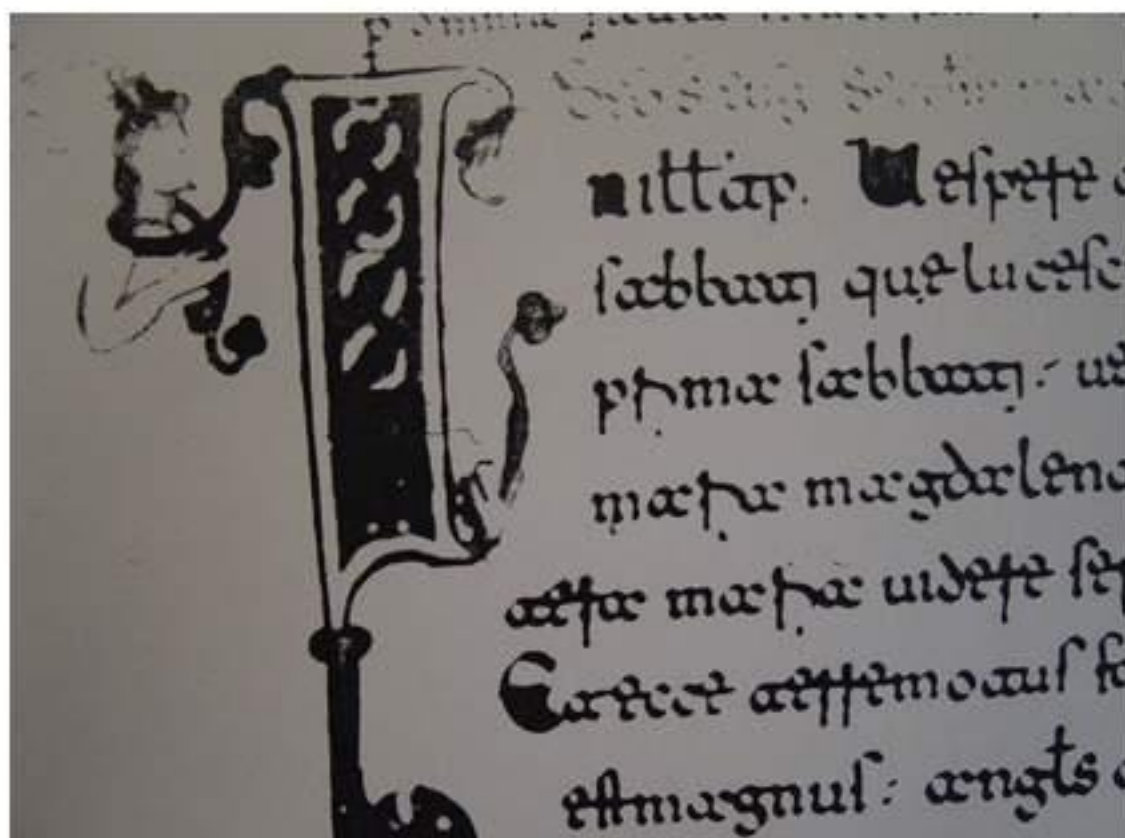 Vespere
sabbati que lucesc
prima sabbati: ue
maria magdalen
tera maria uidere sep
Et ecce terremotus fa
est magnus: angls